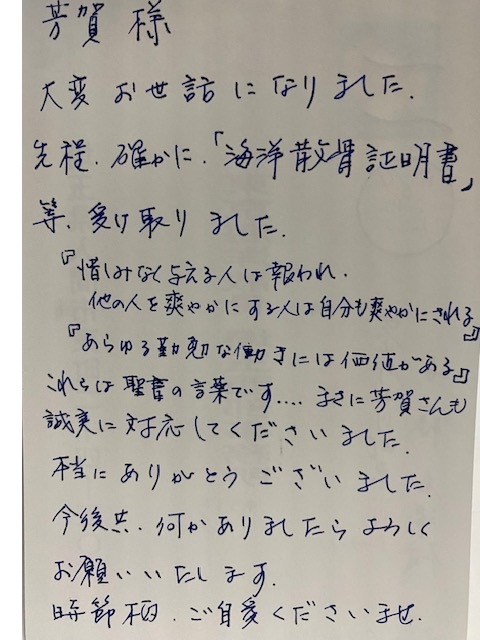 芳賀 様
大変 お世話 に なりました.
先程. 確かに.「海洋散骨証明書」
等. 受け取りました.
『惜しみなく与える人は報われ.
他の人を爽やかにする人は自分も爽やかにされる』
『あらゆる勤勉な働きには価値がある』
これらは聖書の言葉です.... まさに芳賀さんも
誠実に対応してくださいました.
本当にありがとうございました.
今後共. 何かありましたらよろしく
お願いいたします.
時節柄. ご自愛くださいませ.